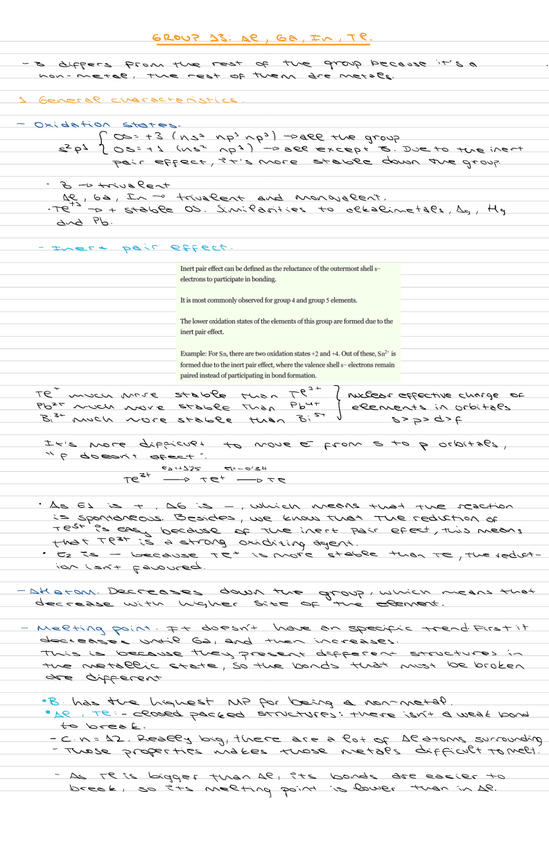 GROUP 13: Al, Ga, In, Tl.
- B differs from the rest of the group because it's a
non-metal, the rest of them are metals.
1. General characteristics.
- Oxidation states.
s²p¹ { OS = +3 (ns² np¹ np¹) → all the group
OS = +1 (ns² np¹) → all except B. Due to the inert
pair effect, it's more stable down the group
· B → trivalent
Al, Ga, In → trivalent and monovalent.
· Tl⁺¹ → + stable OS. Similarities to alkalimetals, Ag, Hg
and Pb.
- Inert pair effect.
Inert pair effect can be defined as the reluctance of the outermost shell s–
electrons to participate in bonding.
It is most commonly observed for group 4 and group 5 elements.
The lower oxidation states of the elements of this group are formed due to the
inert pair effect.
Example: For Sn, there are two oxidation states +2 and +4. Out of these, Sn²⁺ is
formed due to the inert pair effect, where the valence shell s– electrons remain
paired instead of participating in bond formation.
Tl⁺ much more stable than Tl³⁺ } nuclear effective charge of
Pb²⁺ much more stable than Pb⁴⁺ elements in orbitals
Bi³⁺ much more stable than Bi⁵⁺ s>p>d>f
It's more difficult to move e⁻ from s to p orbitals,
"f doesn't efect".
E₂=1325 E₁=-0'34
Tl³⁺ → Tl⁺ → Tl
· As E₁ is +, ΔG is -, which means that the reaction
is spontaneous. Besides, we know that the reduction of
Tl³⁺ is easy because of the inert pair efect, this means
that Tl³⁺ is a strong oxidizing agent.
· E₂ is - because Tl⁺ is more stable than Tl, the reduct-
ion isn't favoured.
- ΔHatom. Decreases down the group, which means that
decrease with higher size of the element.
- Melting point. It doesn't have an specific trend. First it
decreases until Ga, and then increases.
This is because they present different structures in
the metallic state, so the bonds that must be broken
are different
· B has the highest MP for being a non-metal.
· Al, Tl: - closed packed structures: there isn't a weak bond
to break.
- C.n = 12. Really big, there are a lot of Al atoms surrounding
- Those properties makes those metals difficult to melt.
- As Tl is bigger than Al, its bonds are easier to
break, so its melting point is lower than in Al.